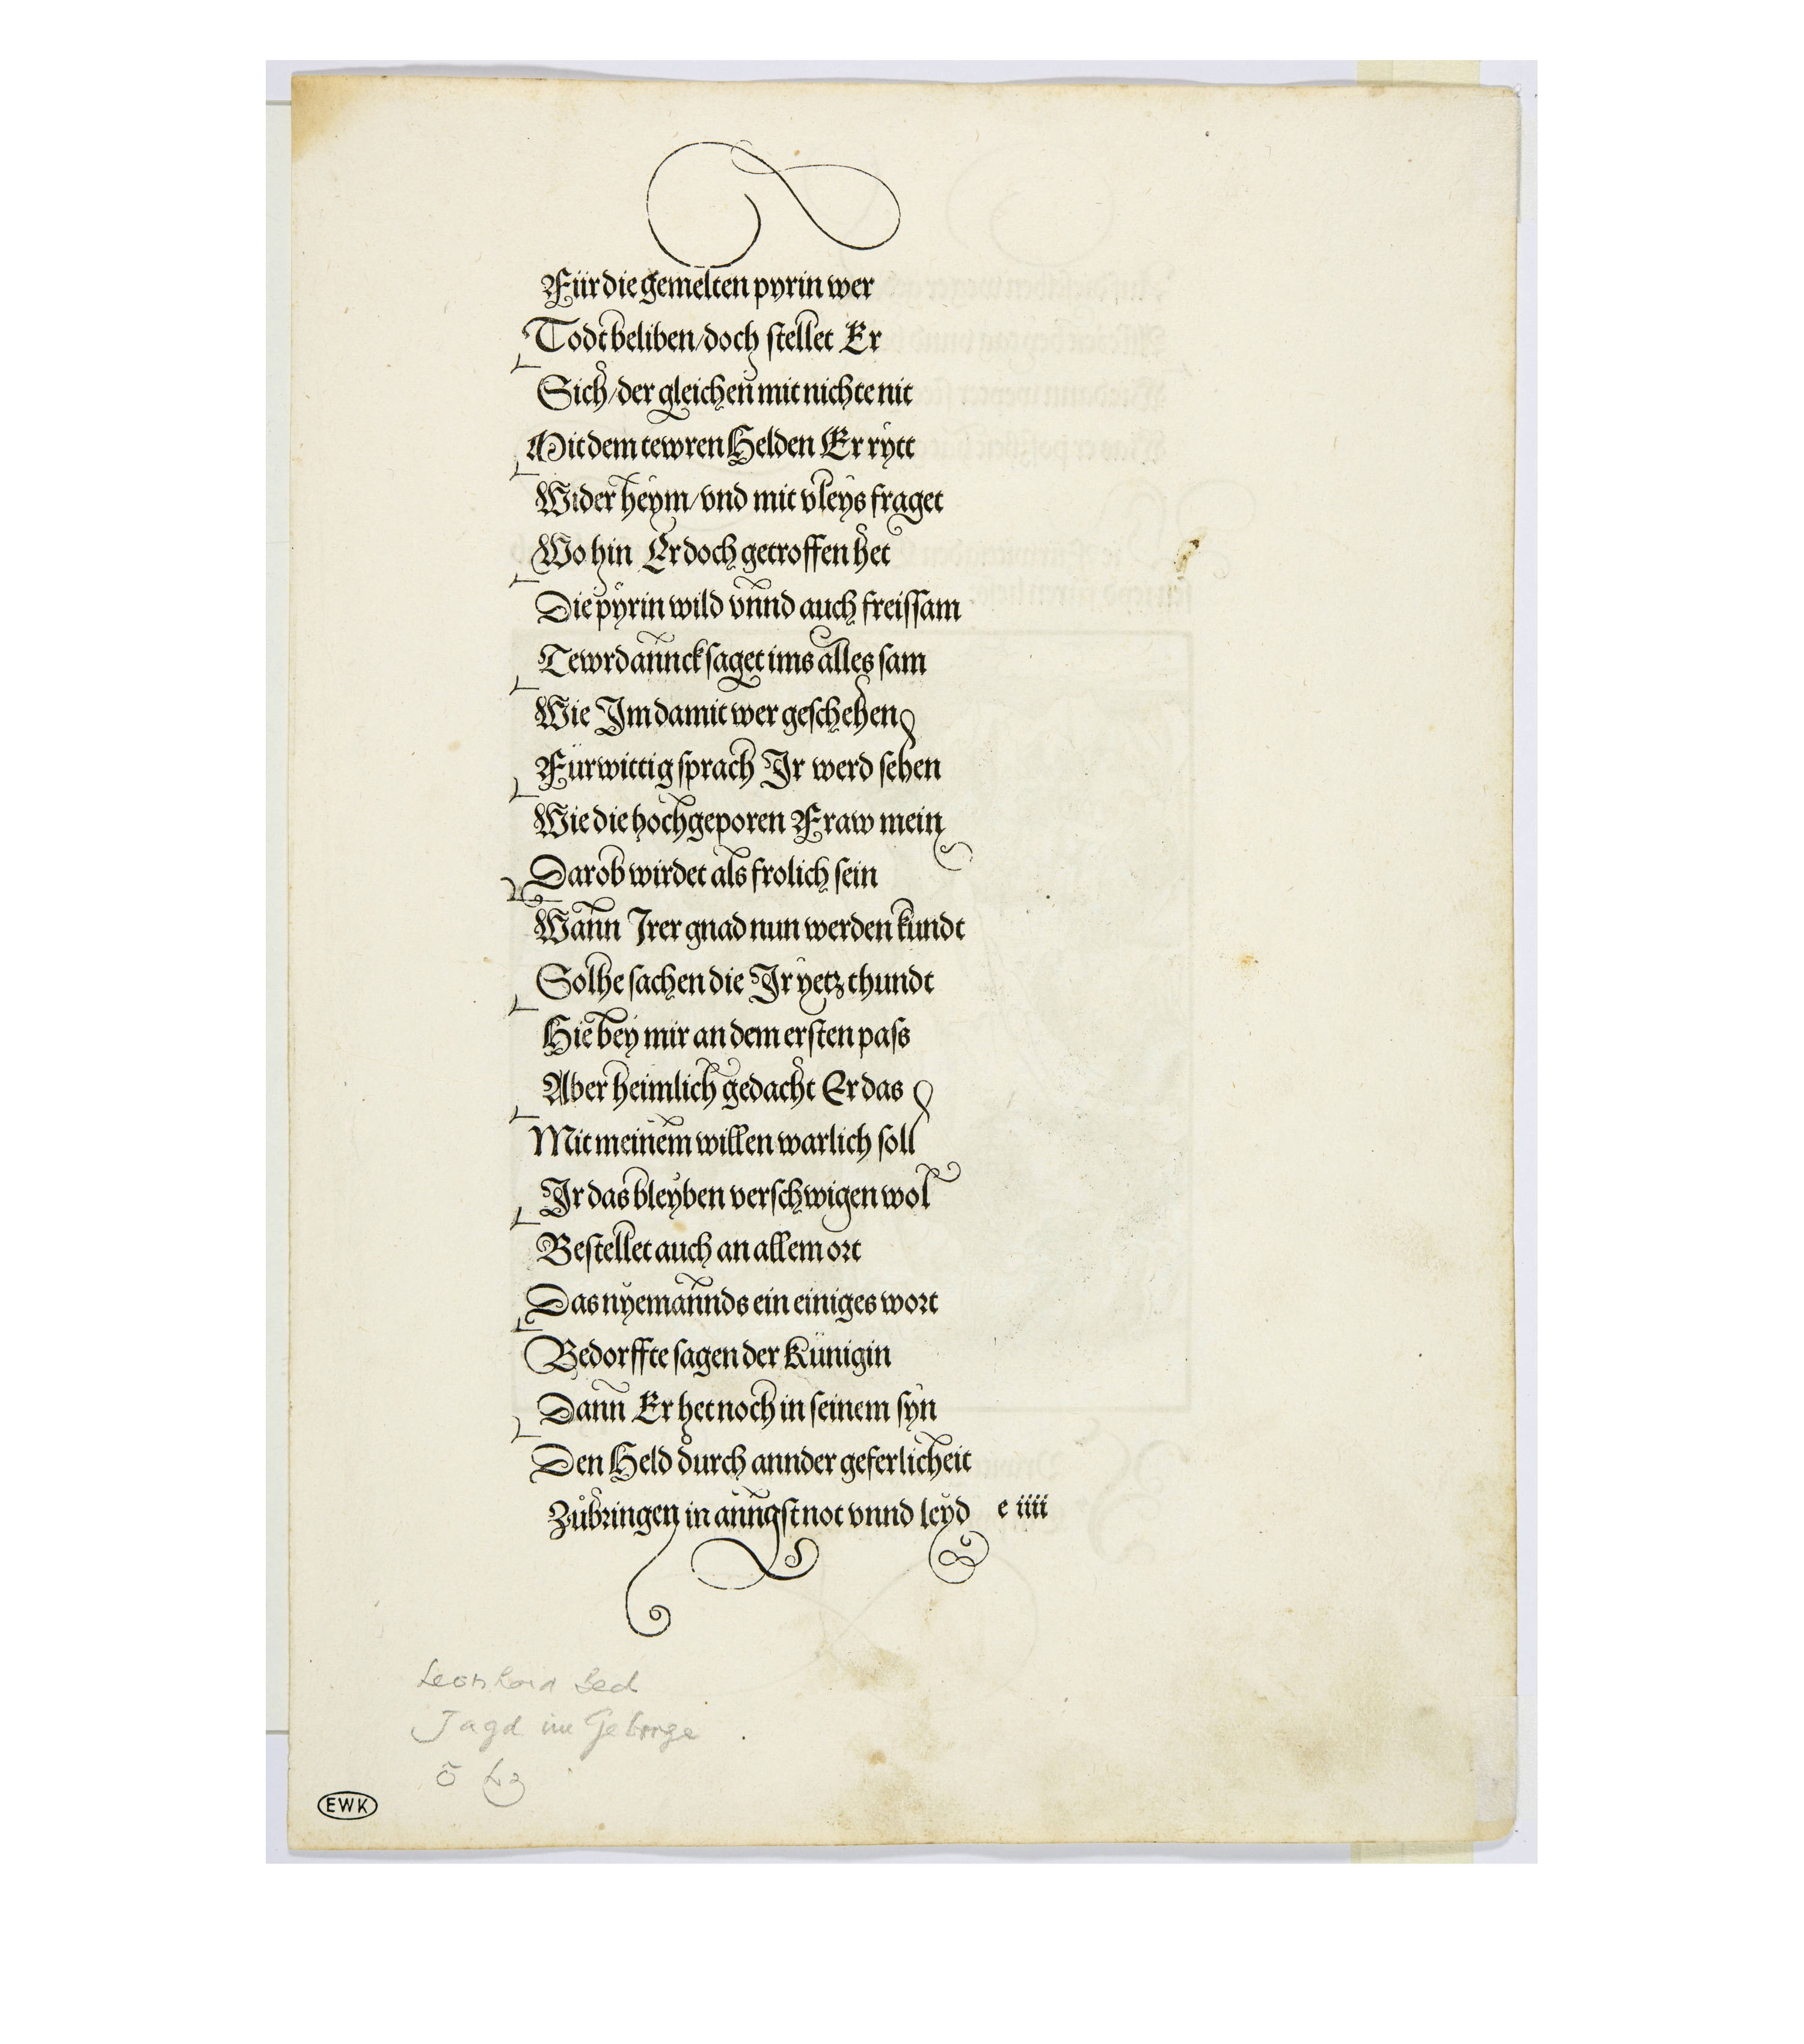 Für die gemelten pyrin wer
Todt beliben/doch stellet Er
Sich/der gleichen mit nichte nit
Mit dem tewren Helden Er rytt
Wider heym/vnd mit vleys fraget
Wo hin Er doch getroffen het
Die pyrin wild vnnd auch freissam
Tewrdannck saget ims alles sam
Wie Im damit wer geschehen
Fürwittig sprach Ir werd sehen
Wie die hochgeporen Fraw mein
Darob wirdet als frolich sein
Wann Irer gnad nun werden kundt
Solhe sachen die Ir yetz thundt
Hie bey mir an dem ersten pass
Aber heimlich gedacht Er das
Mit meinem willen warlich soll
Ir das bleyben verschwigen wol
Bestellet auch an allem ort
Das nyemannds ein einiges wort
Bedorffte sagen der Künigin
Dann Er het noch in seinem syn
Den Held durch annder geferlicheit
Zůbringen in anngst not vnnd leyd e iiii
Leonhard Beck
Jagd im Gebirge
EWK